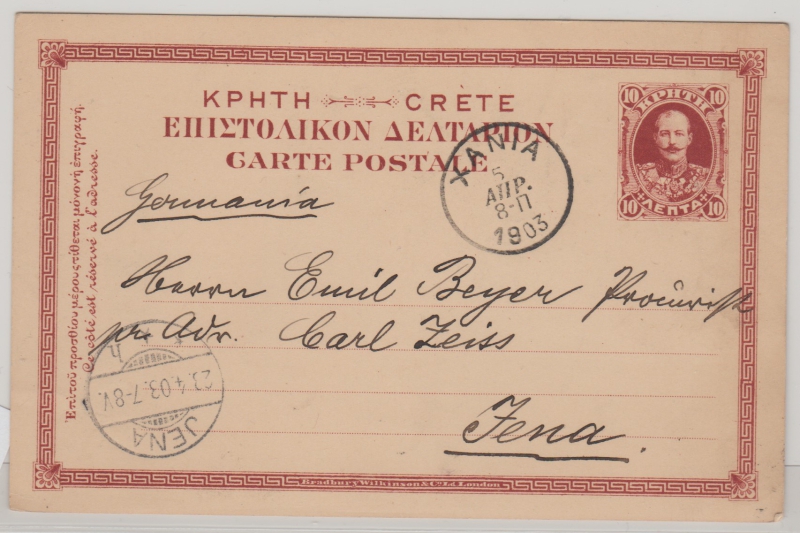 ΚΡΗΤΗ CRÈTE
ΕΠΙΣΤΟΛΙΚΟΝ ΔΕΛΤΑΡΙΟΝ
CARTE POSTALE
10 ΚΡΗΤΗ 10
10 ΛΕΠΤΑ 10
ΧΑΝΙΑ
5
ΑΠΡ.
8-Π
1903
Germania
Herrn Emil Beyer Procurist
pr. Adr. Carl Zeiss
Jena.
JENA
4.03.7-8V.
Ἐπὶ τοῦ προσθίου μέρους τίθεται μόνον ἡ ἐπιγραφή.
Ce côté est réservé à l'adresse.
Bradbury Wilkinson & Co. Ld. London